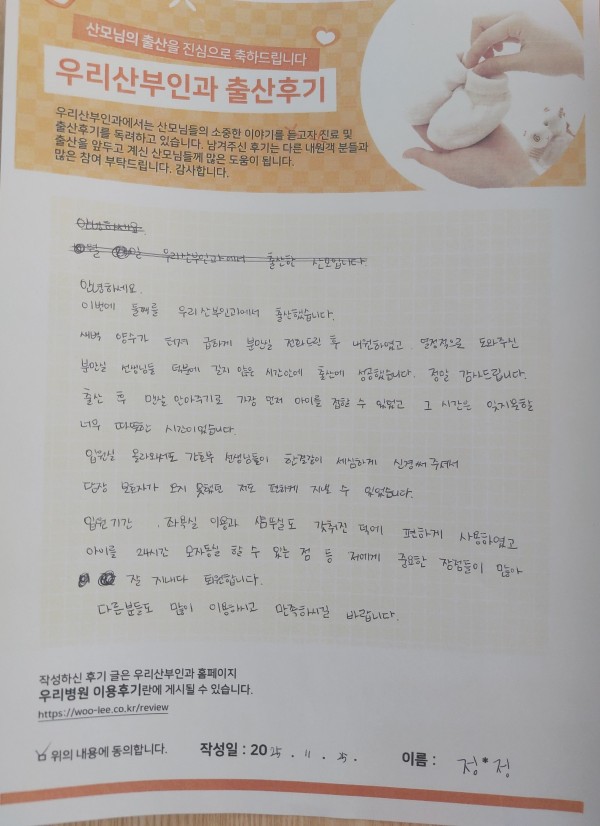 산모님의 출산을 진심으로 축하드립니다
우리산부인과 출산후기
우리산부인과에서는 산모님들의 소중한 이야기를 듣고자 진료 및
출산후기를 독려하고 있습니다. 남겨주신 후기는 다른 내원객 분들과
출산을 앞두고 계신 산모님들께 많은 도움이 됩니다.
많은 참여 부탁드립니다. 감사합니다.
안녕하세요.
월 일 우리산부인과에서 출산한 산모입니다.
안녕하세요.
이번에 둘째를 우리산부인과에서 출산했습니다.
새벽 양수가 터져 급하게 분만실 전화드린 후 내원하였고, 열정적으로 도와주신
분만실 선생님들 덕분에 길지 않은 시간안에 출산에 성공했습니다. 정말 감사드립니다.
출산 후 맨살 안아주기로 가장 먼저 아이를 접할 수 있었고 그 시간은 잊지못할
너무 따뜻한 시간이었습니다.
입원실 올라와서도 간호부 선생님들이 한결같이 세심하게 신경써주셔서
당장 보호자가 오지 못했던 저도 편하게 지낼 수 있었습니다.
입원기간, 좌욕실 이용과 샴푸실도 갖춰진 덕에 편하게 사용하였고
아이를 24시간 모자동실 할 수 있는 점 등 저에게 중요한 장점들이 많아
잘 지내다 퇴원합니다.
다른분들도 많이 이용하시고 만족하시길 바랍니다.
작성하신 후기 글은 우리산부인과 홈페이지
우리병원 이용후기란에 게시될 수 있습니다.
https://woo-lee.co.kr/review
위의 내용에 동의합니다. 작성일 : 2025. 11. 25. 이름 : 정*정